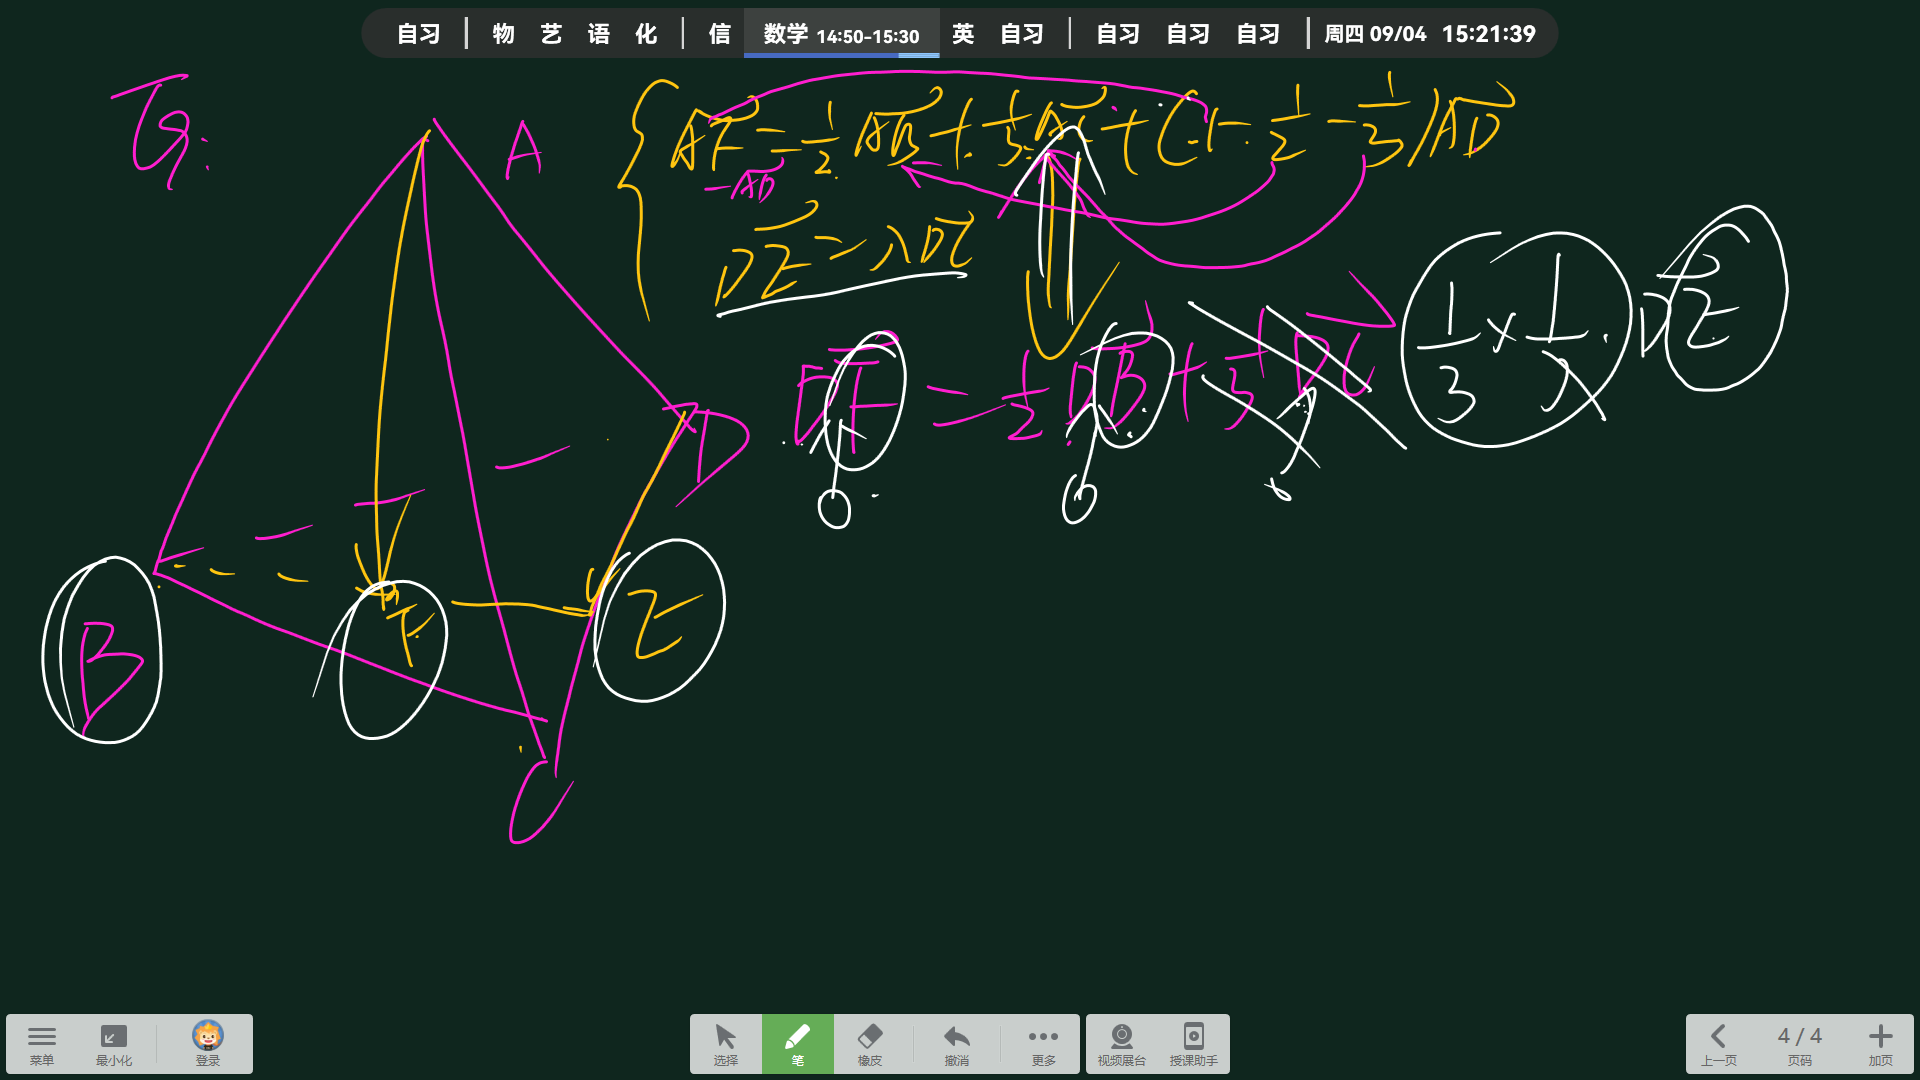 自习 | 物 艺 语 化 | 信 数学 14:50-15:30 英 自习 | 自习 自习 自习 | 周四 09/04 15:21:39
T8:
A
AF = 1/2 AB + 1/3 AC + (1 - 1/2 - 1/3) AD
-AD
DE = λDC
DF = 1/2 DB + 1/3 DC 1/3 × 1/λ · DE
D
B
F
E
C
菜单 最小化 登录 选择 笔 橡皮 撤消 更多 视频展台 授课助手 上一页 4 / 4 页码 加页